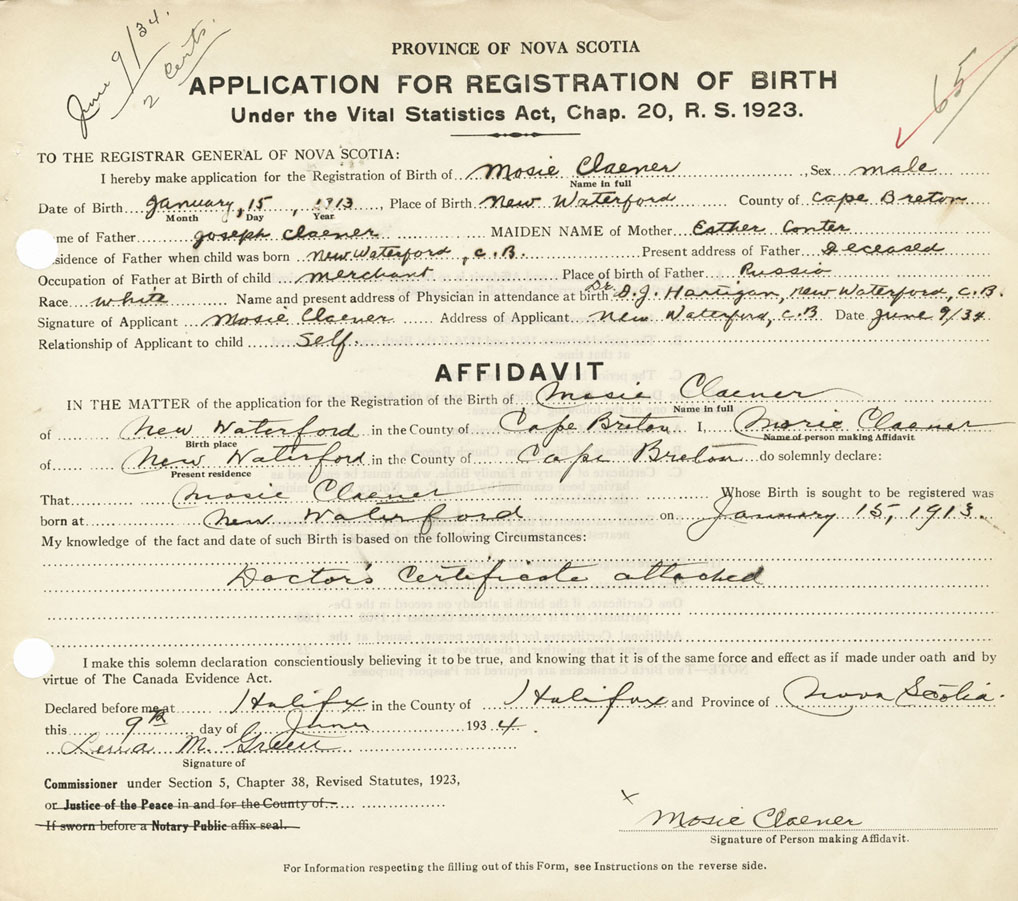 June 9/34.
2 Certs.
65
PROVINCE OF NOVA SCOTIA
APPLICATION FOR REGISTRATION OF BIRTH
Under the Vital Statistics Act, Chap. 20, R. S. 1923.
TO THE REGISTRAR GENERAL OF NOVA SCOTIA:
I hereby make application for the Registration of Birth of Mosie Claener, Sex male
Name in full
Date of Birth January, 15, 1913, Place of Birth New Waterford County of Cape Breton
Month Day Year
me of Father Joseph Claener MAIDEN NAME of Mother Esther Conter
sidence of Father when child was born New Waterford, C.B. Present address of Father Deceased
Occupation of Father at Birth of child merchant Place of birth of Father Russia
Race white Name and present address of Physician in attendance at birth Dr. D.J. Hartigan, New Waterford, C.B.
Signature of Applicant Mosie Claener Address of Applicant New Waterford, C.B Date June 9/34
Relationship of Applicant to child Self.
AFFIDAVIT
IN THE MATTER of the application for the Registration of the Birth of Mosie Claener
Name in full
of New Waterford in the County of Cape Breton I, Mosie Claener
Birth place Name of person making Affidavit
of New Waterford in the County of Cape Breton do solemnly declare:
Present residence
That Mosie Claener Whose Birth is sought to be registered was
born at New Waterford on January 15, 1913.
My knowledge of the fact and date of such Birth is based on the following Circumstances:
Doctor's Certificate attached
I make this solemn declaration conscientiously believing it to be true, and knowing that it is of the same force and effect as if made under oath and by
virtue of The Canada Evidence Act.
Declared before me at Halifax in the County of Halifax and Province of Nova Scotia.
this 9th day of June 1934.
M. Green
Signature of
Commissioner under Section 5, Chapter 38, Revised Statutes, 1923,
or Justice of the Peace in and for the County of
If sworn before a Notary Public affix seal.
x Mosie Claener
Signature of Person making Affidavit.
For Information respecting the filling out of this Form, see Instructions on the reverse side.